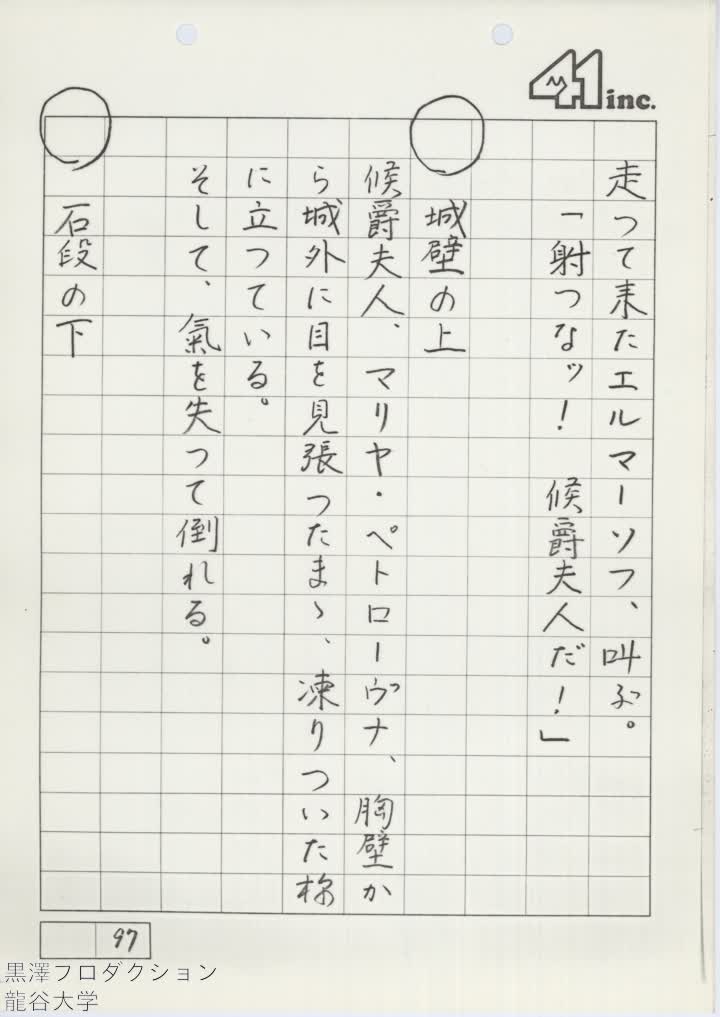 41 inc.
走つて来たエルマーソフ、叫ぶ。
「射つなッ! 候爵夫人だ!」
城壁の上
候爵夫人、マリヤ・ペトローヴナ、胸壁か
ら城外に目を見張つたまゝ、凍りついた様
に立つている。
そして、氣を失つて倒れる。
石段の下
97
黒澤プロダクション
龍谷大学